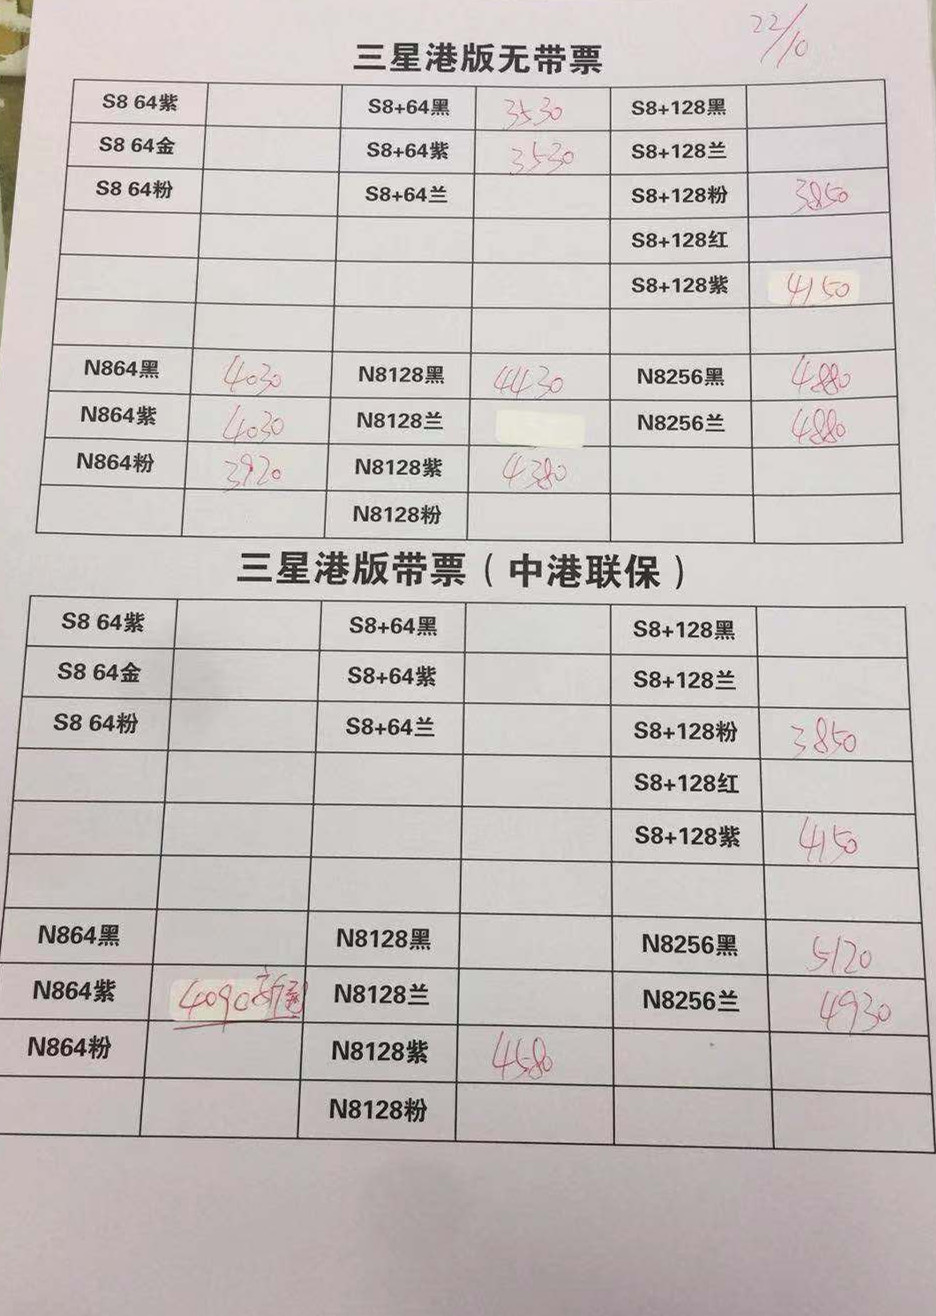 22/10
三星港版无带票
S8 64紫 S8+64黑 3530 S8+128黑
S8 64金 S8+64紫 3530 S8+128兰
S8 64粉 S8+64兰 S8+128粉 3850
S8+128红
S8+128紫 4150
N864黑 4030 N8128黑 4430 N8256黑 4880
N864紫 4030 N8128兰 N8256兰 4880
N864粉 3920 N8128紫 4380
N8128粉
三星港版带票（中港联保）
S8 64紫 S8+64黑 S8+128黑
S8 64金 S8+64紫 S8+128兰
S8 64粉 S8+64兰 S8+128粉 3850
S8+128红
S8+128紫 4150
N864黑 N8128黑 N8256黑 5120
N864紫 4090 N8128兰 N8256兰 4930
N864粉 N8128紫 4580
N8128粉